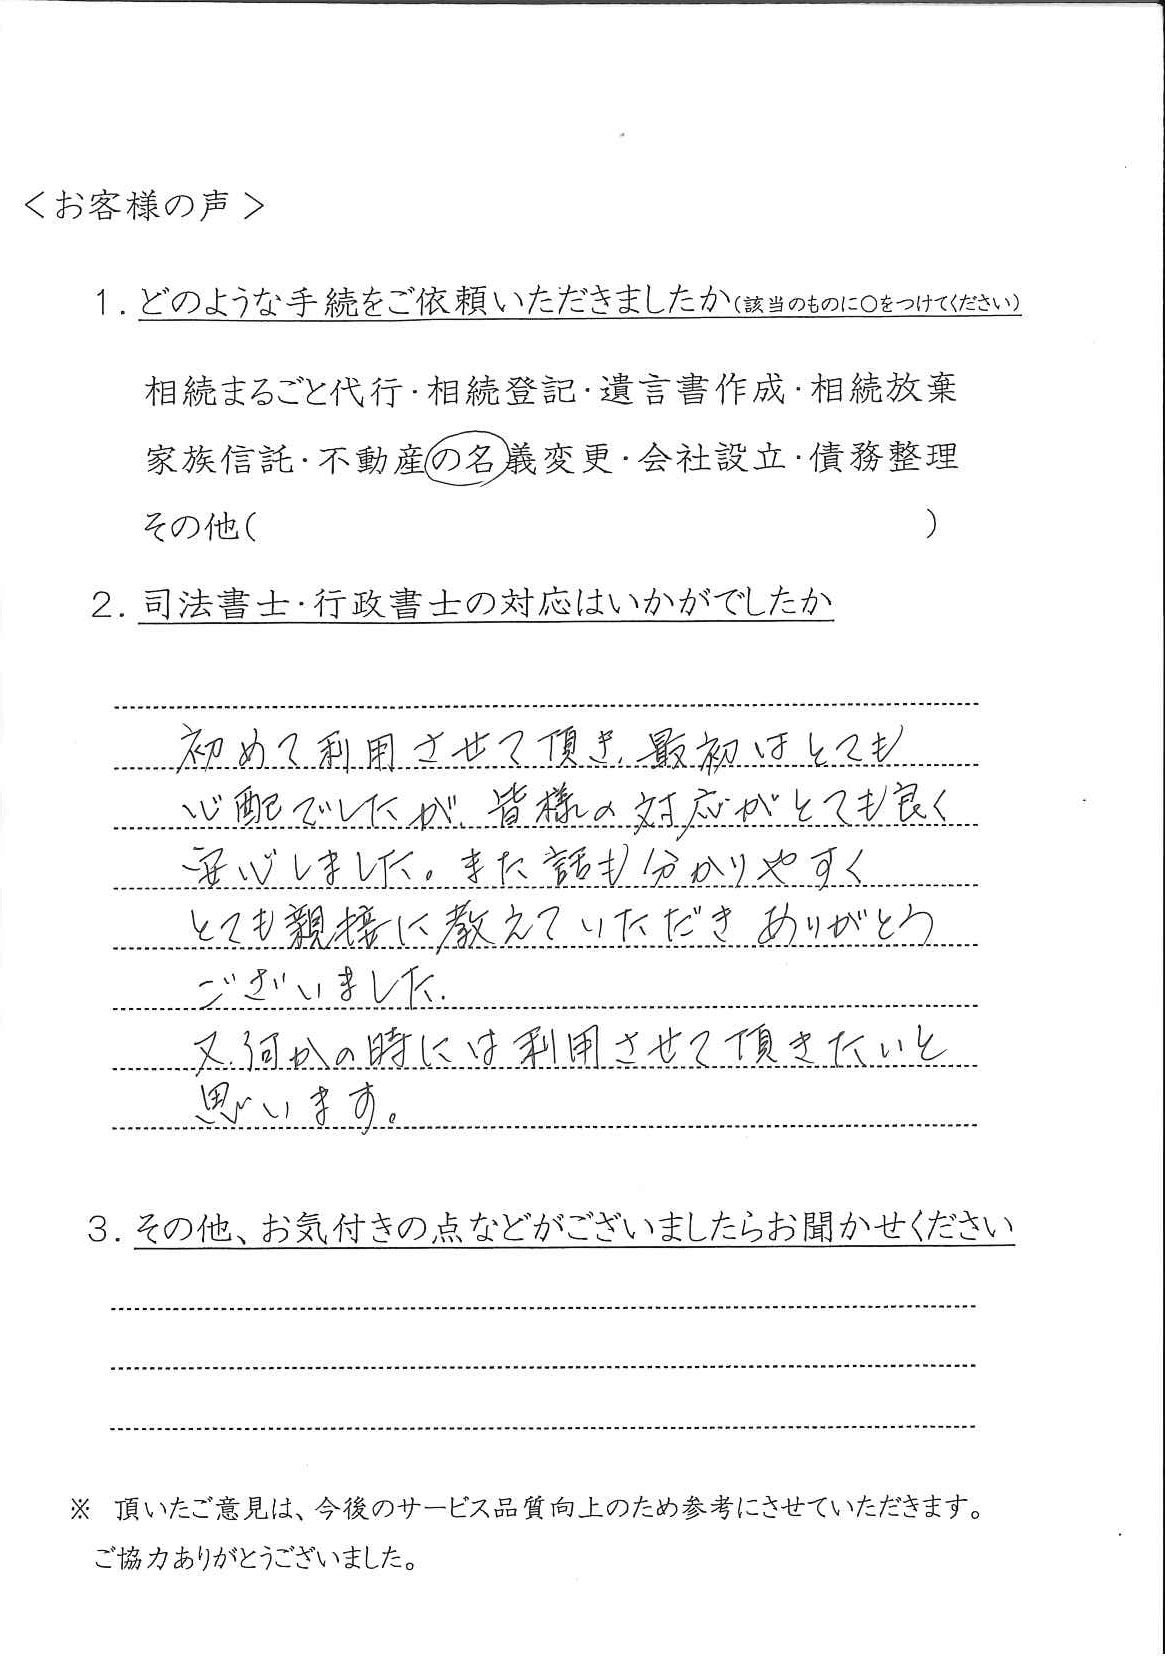 ＜お客様の声＞
1. どのような手続をご依頼いただきましたか(該当のものに○をつけてください)
相続まるごと代行・相続登記・遺言書作成・相続放棄
家族信託・不動産の名義変更・会社設立・債務整理
その他(　　　　　　　　　　)
2. 司法書士・行政書士の対応はいかがでしたか
初めて利用させて頂き、最初はとても
心配でしたが、皆様の対応がとても良く
安心しました。また話も分かりやすく
とても親接に教えていただきありがとう
ございました.
又、何かの時には利用させて頂きたいと
思います。
3. その他、お気付きの点などがございましたらお聞かせください
※　頂いたご意見は、今後のサービス品質向上のため参考にさせていただきます。
ご協力ありがとうございました。